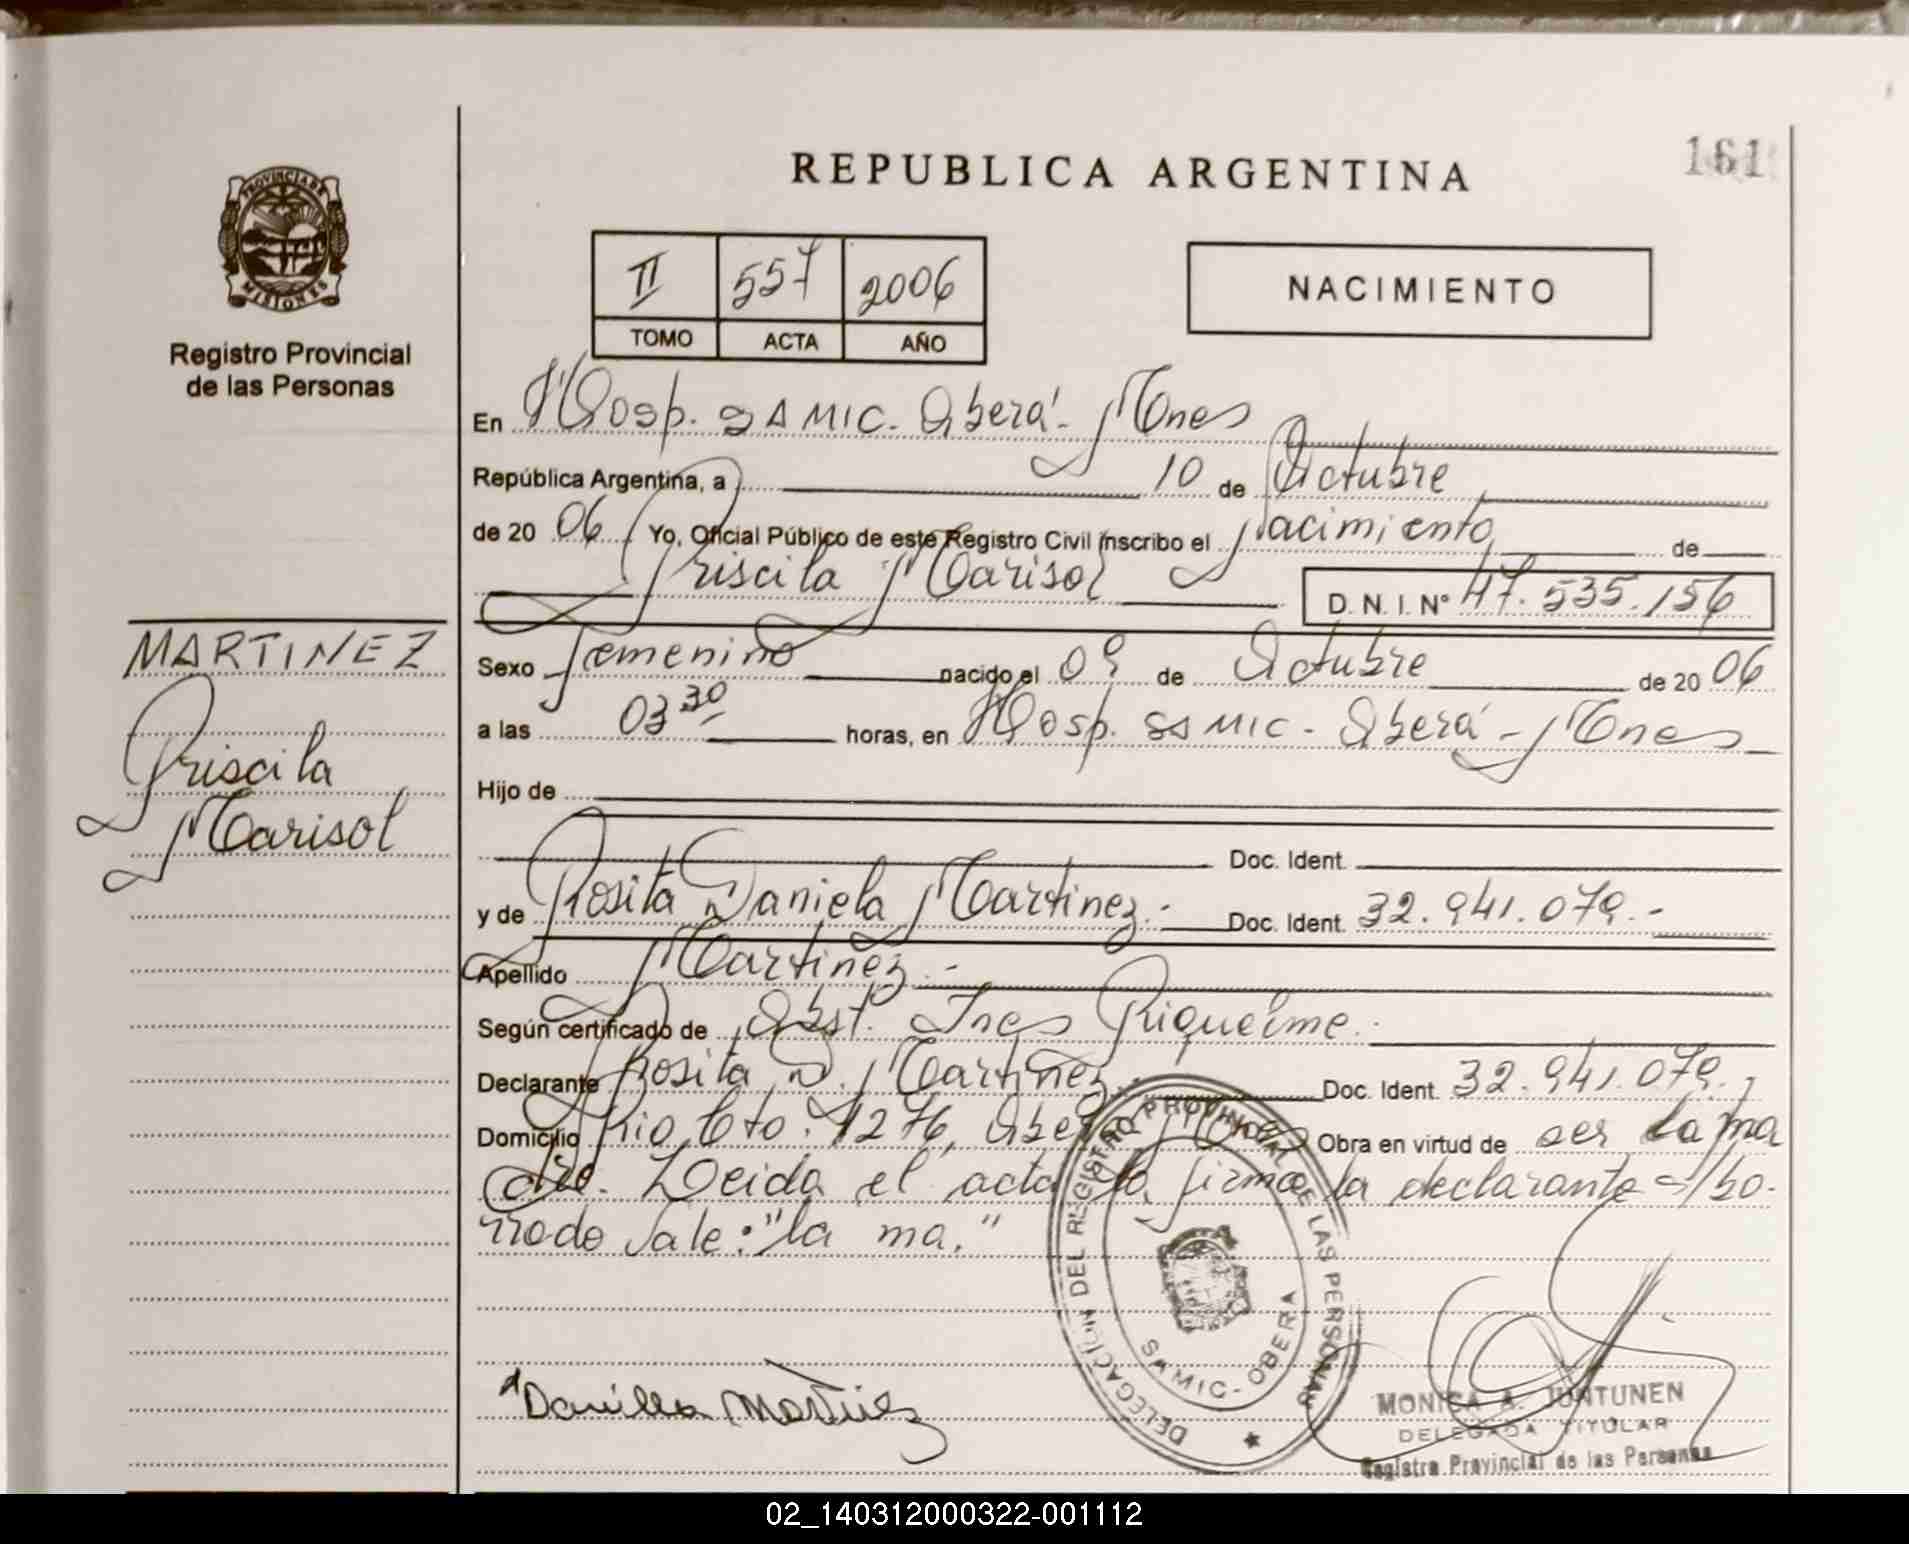 REPUBLICA ARGENTINA
161
PROVINCIA DE
MISIONES
Registro Provincial
de las Personas
II 557 2006
TOMO ACTA AÑO
NACIMIENTO
En Hosp. SAMIC. Oberá - Mnes
República Argentina, a 10 de Octubre
de 20 06 Yo, Oficial Público de este Registro Civil inscribo el Nacimiento de
Priscila Marisol D. N. I. Nº 47.535.156
MARTINEZ
Priscila
Marisol
Sexo femenino nacido el 09 de Octubre de 20 06
a las 03 30 horas, en Hosp. SAMIC - Oberá - Mnes
Hijo de
Doc. Ident.
y de Rosita Daniela Martinez.- Doc. Ident. 32.941.079.-
Apellido Martinez.-
Según certificado de Obst. Ines Riquelme.-
Declarante Rosita D. Martinez.- Doc. Ident. 32.941.079.-
Domicilio Rio Cto. 1276, Oberá Mnes Obra en virtud de ser la ma
dre. Leida el acta la firma la declarante - So-
rrado Vale: "la ma."
DELEGACIÓN DEL REGISTRO PROVINCIAL DE LAS PERSONAS
SAMIC - OBERA
Daniela Martinez
MONICA A. JUNTUNEN
DELEGADA TITULAR
Registro Provincial de las Personas
02_140312000322-001112